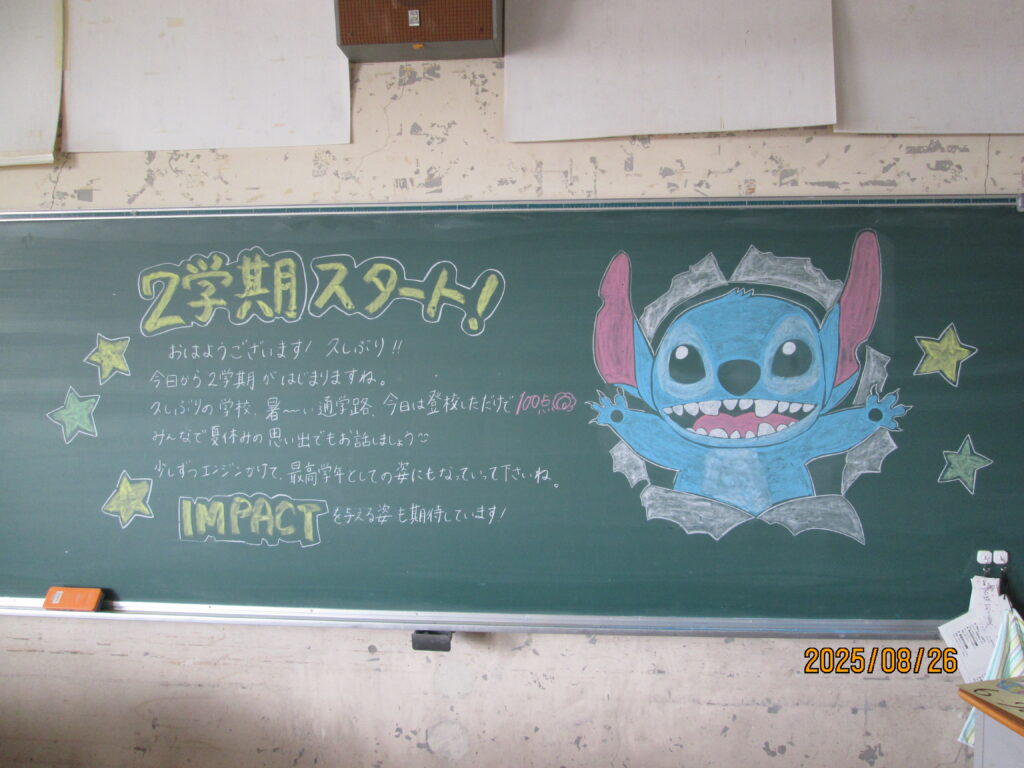 2学期スタート!
おはようございます! 久しぶり!!
今日から2学期がはじまりますね。
久しぶりの学校、暑〜い通学路、今日は登校しただけで100点
みんなで夏休みの思い出でもお話しましょう
少しずつエンジンかけて、最高学年としての姿にもなっていって下さいね。
IMPACTを与える姿も期待しています!
2025/08/26